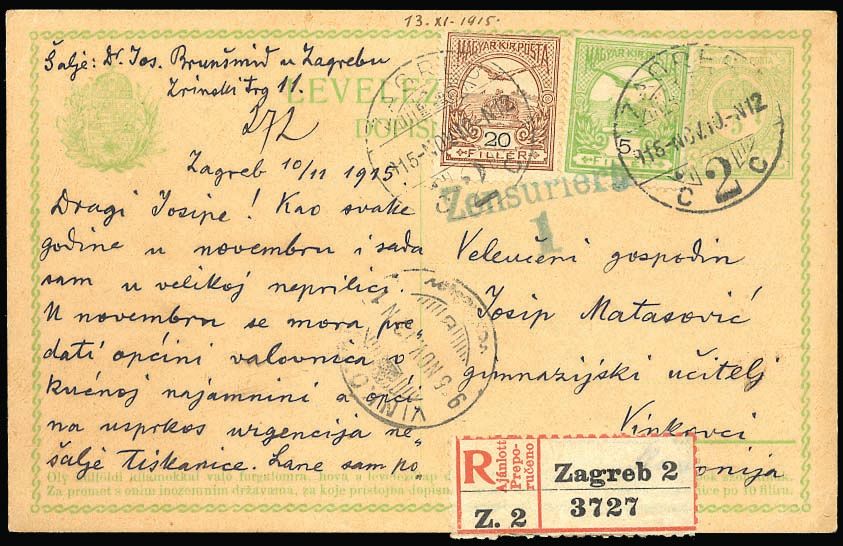 13.-XI-1915.
Šalje: Dr. Jos. Brunšmid u Zagrebu
Zrinski trg 11.
272
LEVELEZ
DOPIS
MAGYAR KIR. POSTA
20
FILLÉR
MAGYAR KIR. POSTA
5
FILLÉR
ZAGREB
915-NOV.10-N12
C 2 C
Zensuriert
1
Zagreb 10/11 1915
Dragi Josipe! Kao svake
godine u novembru i sada
sam u velikoj neprilici.
U novembru se mora pre„
dati općini valovnica o
kućnoj najamnini a opći„
na usprkos urgencija ne„
šalje tiskanice. Lane sam po„
Veleučeni gospodin
Josip Matasović
gimnazijski učitelj
Vinkovci
onija
VINKO
R
Ajánlott
Prepo-
ručeno
Z. 2
Zagreb 2
3727
Oly külföldi
Za promet s onim inozemnim državama, za koje pristojba dopisn
ce po 10 filira.